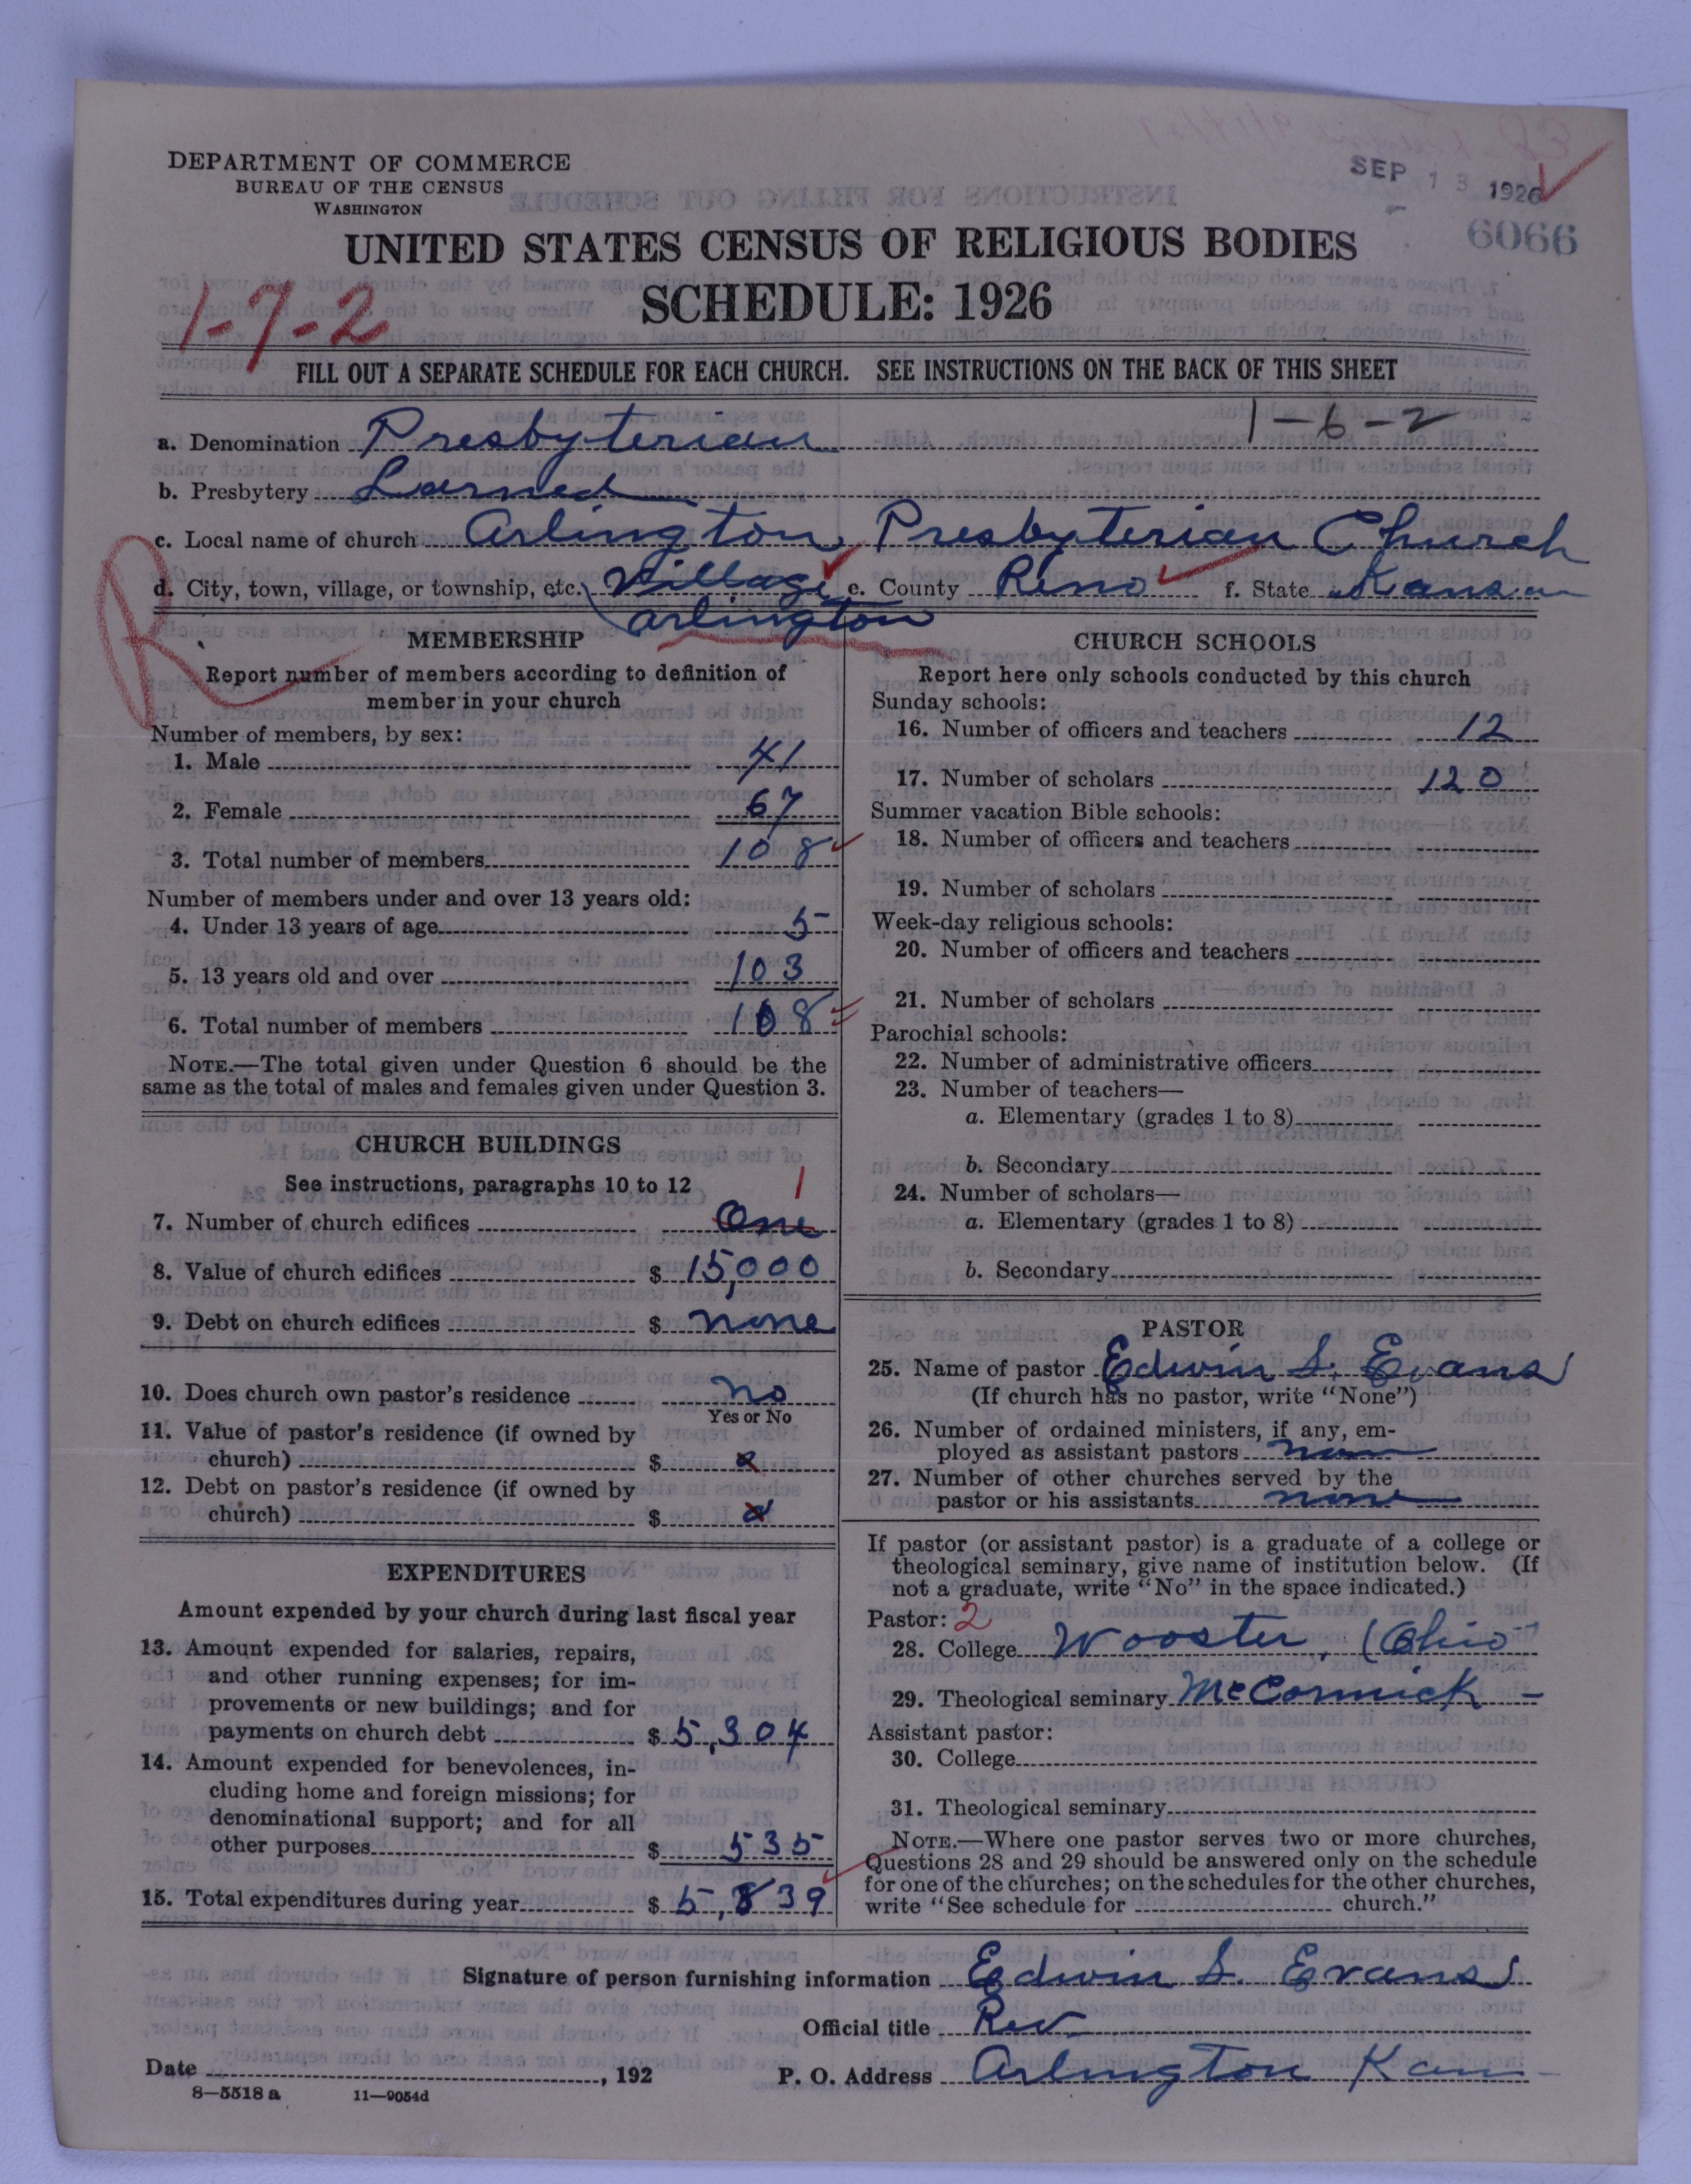 DEPARTMENT OF COMMERCE
BUREAU OF THE CENSUS
WASHINGTON
SEP 13 1926
6066
UNITED STATES CENSUS OF RELIGIOUS BODIES
SCHEDULE: 1926
1-7-2
FILL OUT A SEPARATE SCHEDULE FOR EACH CHURCH. SEE INSTRUCTIONS ON THE BACK OF THIS SHEET
1-6-2
a. Denomination Presbyterian
b. Presbytery Larned
c. Local name of church Arlington Presbyterian Church
d. City, town, village, or township, etc. Village e. County Reno f. State Kansas
Arlington
R
MEMBERSHIP
Report number of members according to definition of
member in your church
Number of members, by sex:
1. Male 41
2. Female 67
3. Total number of members 108
Number of members under and over 13 years old:
4. Under 13 years of age 5
5. 13 years old and over 103
6. Total number of members 108
NOTE.—The total given under Question 6 should be the
same as the total of males and females given under Question 3.
CHURCH BUILDINGS
See instructions, paragraphs 10 to 12
1
7. Number of church edifices One
8. Value of church edifices $ 15,000
9. Debt on church edifices $ none
10. Does church own pastor's residence no
Yes or No
11. Value of pastor's residence (if owned by
church) $
12. Debt on pastor's residence (if owned by
church) $
EXPENDITURES
Amount expended by your church during last fiscal year
13. Amount expended for salaries, repairs,
and other running expenses; for im-
provements or new buildings; and for
payments on church debt $ 5,304
14. Amount expended for benevolences, in-
cluding home and foreign missions; for
denominational support; and for all
other purposes $ 535
15. Total expenditures during year $ 5,839
CHURCH SCHOOLS
Report here only schools conducted by this church
Sunday schools:
16. Number of officers and teachers 12
17. Number of scholars 120
Summer vacation Bible schools:
18. Number of officers and teachers
19. Number of scholars
Week-day religious schools:
20. Number of officers and teachers
21. Number of scholars
Parochial schools:
22. Number of administrative officers
23. Number of teachers—
a. Elementary (grades 1 to 8)
b. Secondary
24. Number of scholars—
a. Elementary (grades 1 to 8)
b. Secondary
PASTOR
25. Name of pastor Edwin S. Evans
(If church has no pastor, write "None")
26. Number of ordained ministers, if any, em-
ployed as assistant pastors none
27. Number of other churches served by the
pastor or his assistants none
If pastor (or assistant pastor) is a graduate of a college or
theological seminary, give name of institution below. (If
not a graduate, write "No" in the space indicated.)
Pastor: 2
28. College Wooster, (Ohio
29. Theological seminary McCormick -
Assistant pastor:
30. College
31. Theological seminary
NOTE.—Where one pastor serves two or more churches,
Questions 28 and 29 should be answered only on the schedule
for one of the churches; on the schedules for the other churches,
write "See schedule for church."
Signature of person furnishing information Edwin S. Evans
Official title Rev
Date , 192 P. O. Address Arlington Kan
8—5518 a 11—9054d